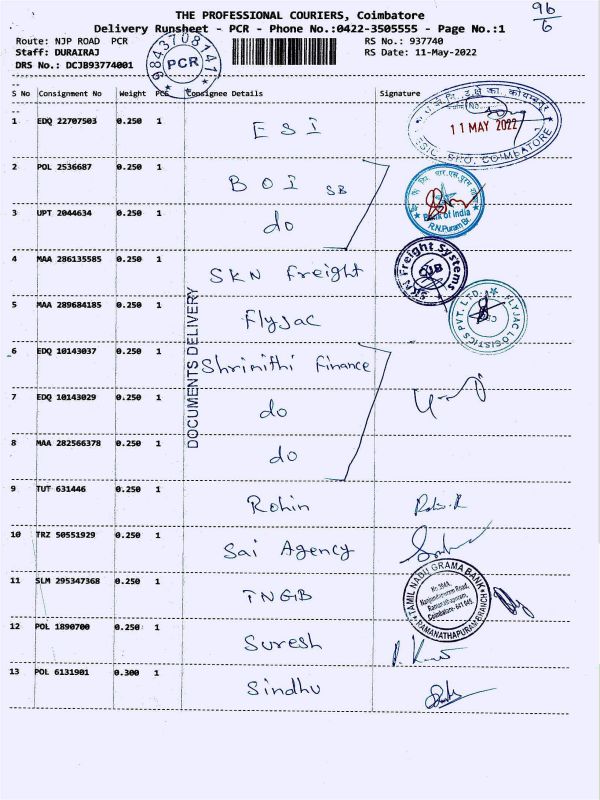 THE PROFESSIONAL COURIERS, Coimbatore
96/6
Delivery Runsheet - PCR - Phone No.:0422-3505555 - Page No.:1
Route: NJP ROAD PCR
RS No.: 937740
Staff: DURAIRAJ
RS Date: 11-May-2022
DRS No.: DCJB93774001
9843708141
PCR
S No Consignment No Weight PCS Consignee Details Signature
1 EDQ 22707503 0.250 1 ESI
11 MAY 2022
ESIC, SRO, COIMBATORE
2 POL 2536687 0.250 1 BOI SB
Bank of India
R.N.Puram Br.
3 UPT 2044634 0.250 1 do
4 MAA 286135585 0.250 1 SKN Freight
SKN Freight Systems
CJB
5 MAA 289684185 0.250 1 Flyjac
FLYJAC LOGISTICS PVT. LTD.
DOCUMENTS DELIVERY
6 EDQ 10143037 0.250 1 Shrinithi Finance
7 EDQ 10143029 0.250 1 do
8 MAA 282566378 0.250 1 do
9 TUT 631446 0.250 1 Rohin
10 TRZ 50551929 0.250 1 Sai Agency
11 SLM 295347368 0.250 1 TNGB
TAMIL NADU GRAMA BANK
Nanjundapuram Road,
Ramanathapuram,
Coimbatore-641 045.
RAMANATHAPURAM BRANCH
12 POL 1890700 0.250 1 Suresh
13 POL 6131901 0.300 1 Sindhu